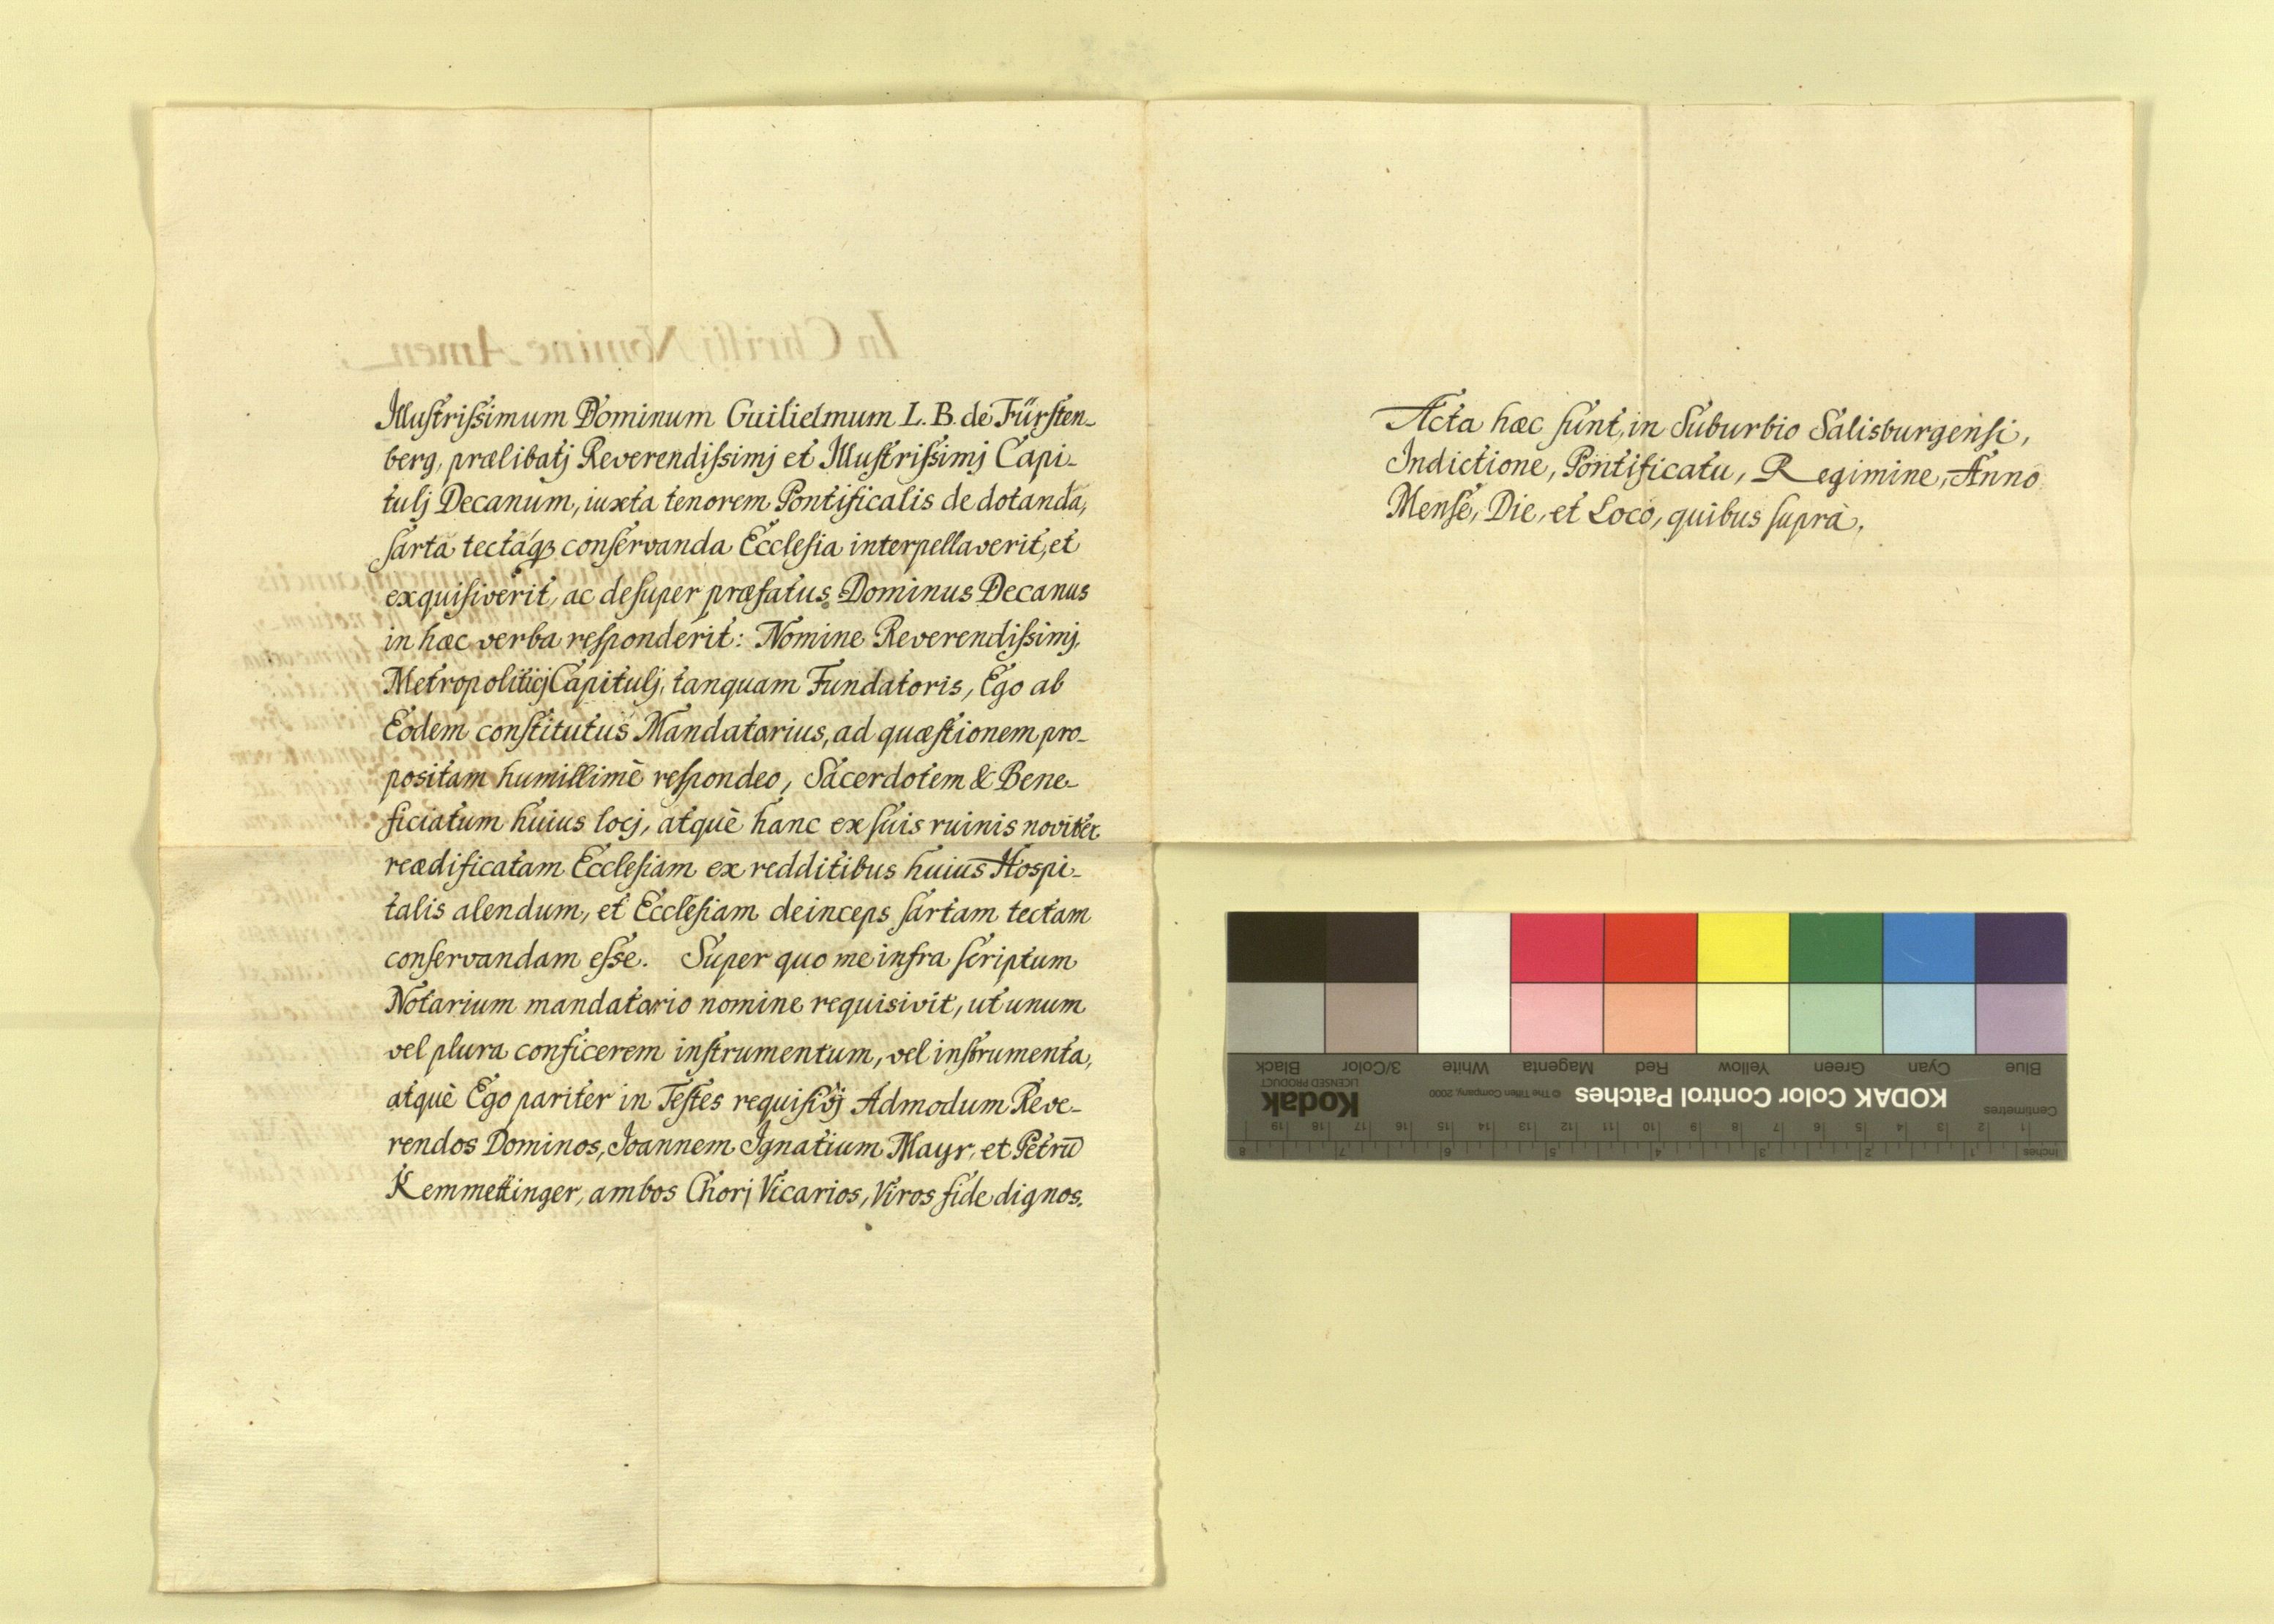 In Christi Nomine Amen
Illustrissimum Dominum Guilielmum L. B. de Fürsten-
berg, prælibatj Reverendissimj et Illustrissimj Capi-
tulj Decanum, iuxta tenorem Pontificalis de dotanda,
sarta tectaq3 conservanda Ecclesia interpellaverit, et
exquisiverit, ac desuper præfatus Dominus Decanus
in hæc verba responderit: Nomine Reverendissimj,
Metropoliticj Capitulj, tanquam Fundatoris, Ego ab
Eodem constitutus Mandatarius, ad quæstionem pro-
positam humillimè respondeo, Sacerdotem & Bene-
ficiatum huius locj, atquè hanc ex suis ruinis noviter
reædificatam Ecclesiam ex redditibus huius Hospi-
talis alendum, et Ecclesiam deinceps sartam tectam
conservandam esse. Super quo me infra scriptum
Notarium mandatario nomine requisivit, ut unum
vel plura conficerem instrumentum, vel instrumenta,
atquè Ego pariter in Testes requisivj Admodum Reve-
rendos Dominos, Joannem Ignatium Mayr, et Petrū
Kemmettinger, ambos Chorj Vicarios, Viros fide dignos.
Acta hæc sunt, in Suburbio Salisburgensi,
Indictione, Pontificatu, Regimine, Anno
Mense, Die, et Loco, quibus suprà.
Blue Cyan Green Yellow Red Magenta White 3/Color Black
KODAK Color Control Patches © The Tiffen Company, 2000 Kodak LICENSED PRODUCT
Centimetres 1 2 3 4 5 6 7 8 9 10 11 12 13 14 15 16 17 18 19
Inches 1 2 3 4 5 6 7 8